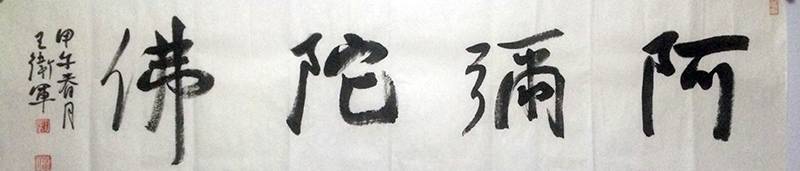 阿彌陀佛
甲午春月
王衛軍